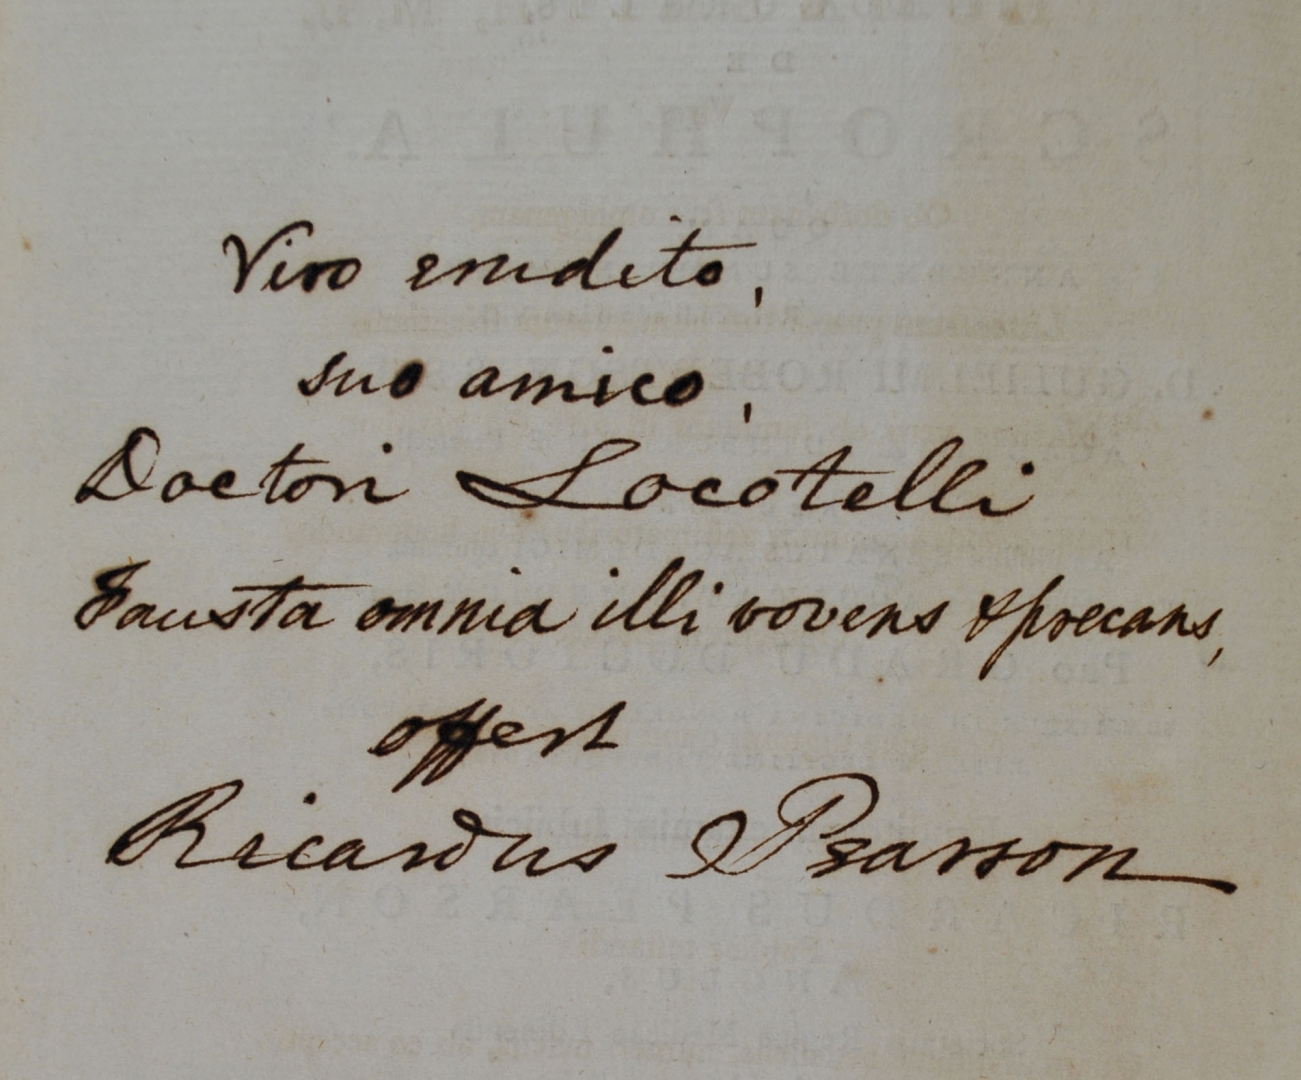 Viro erudito,
suo amico,
Doctori Locotelli
Fausta omnia illi vovens & precans,
offert
Ricardus Pearson